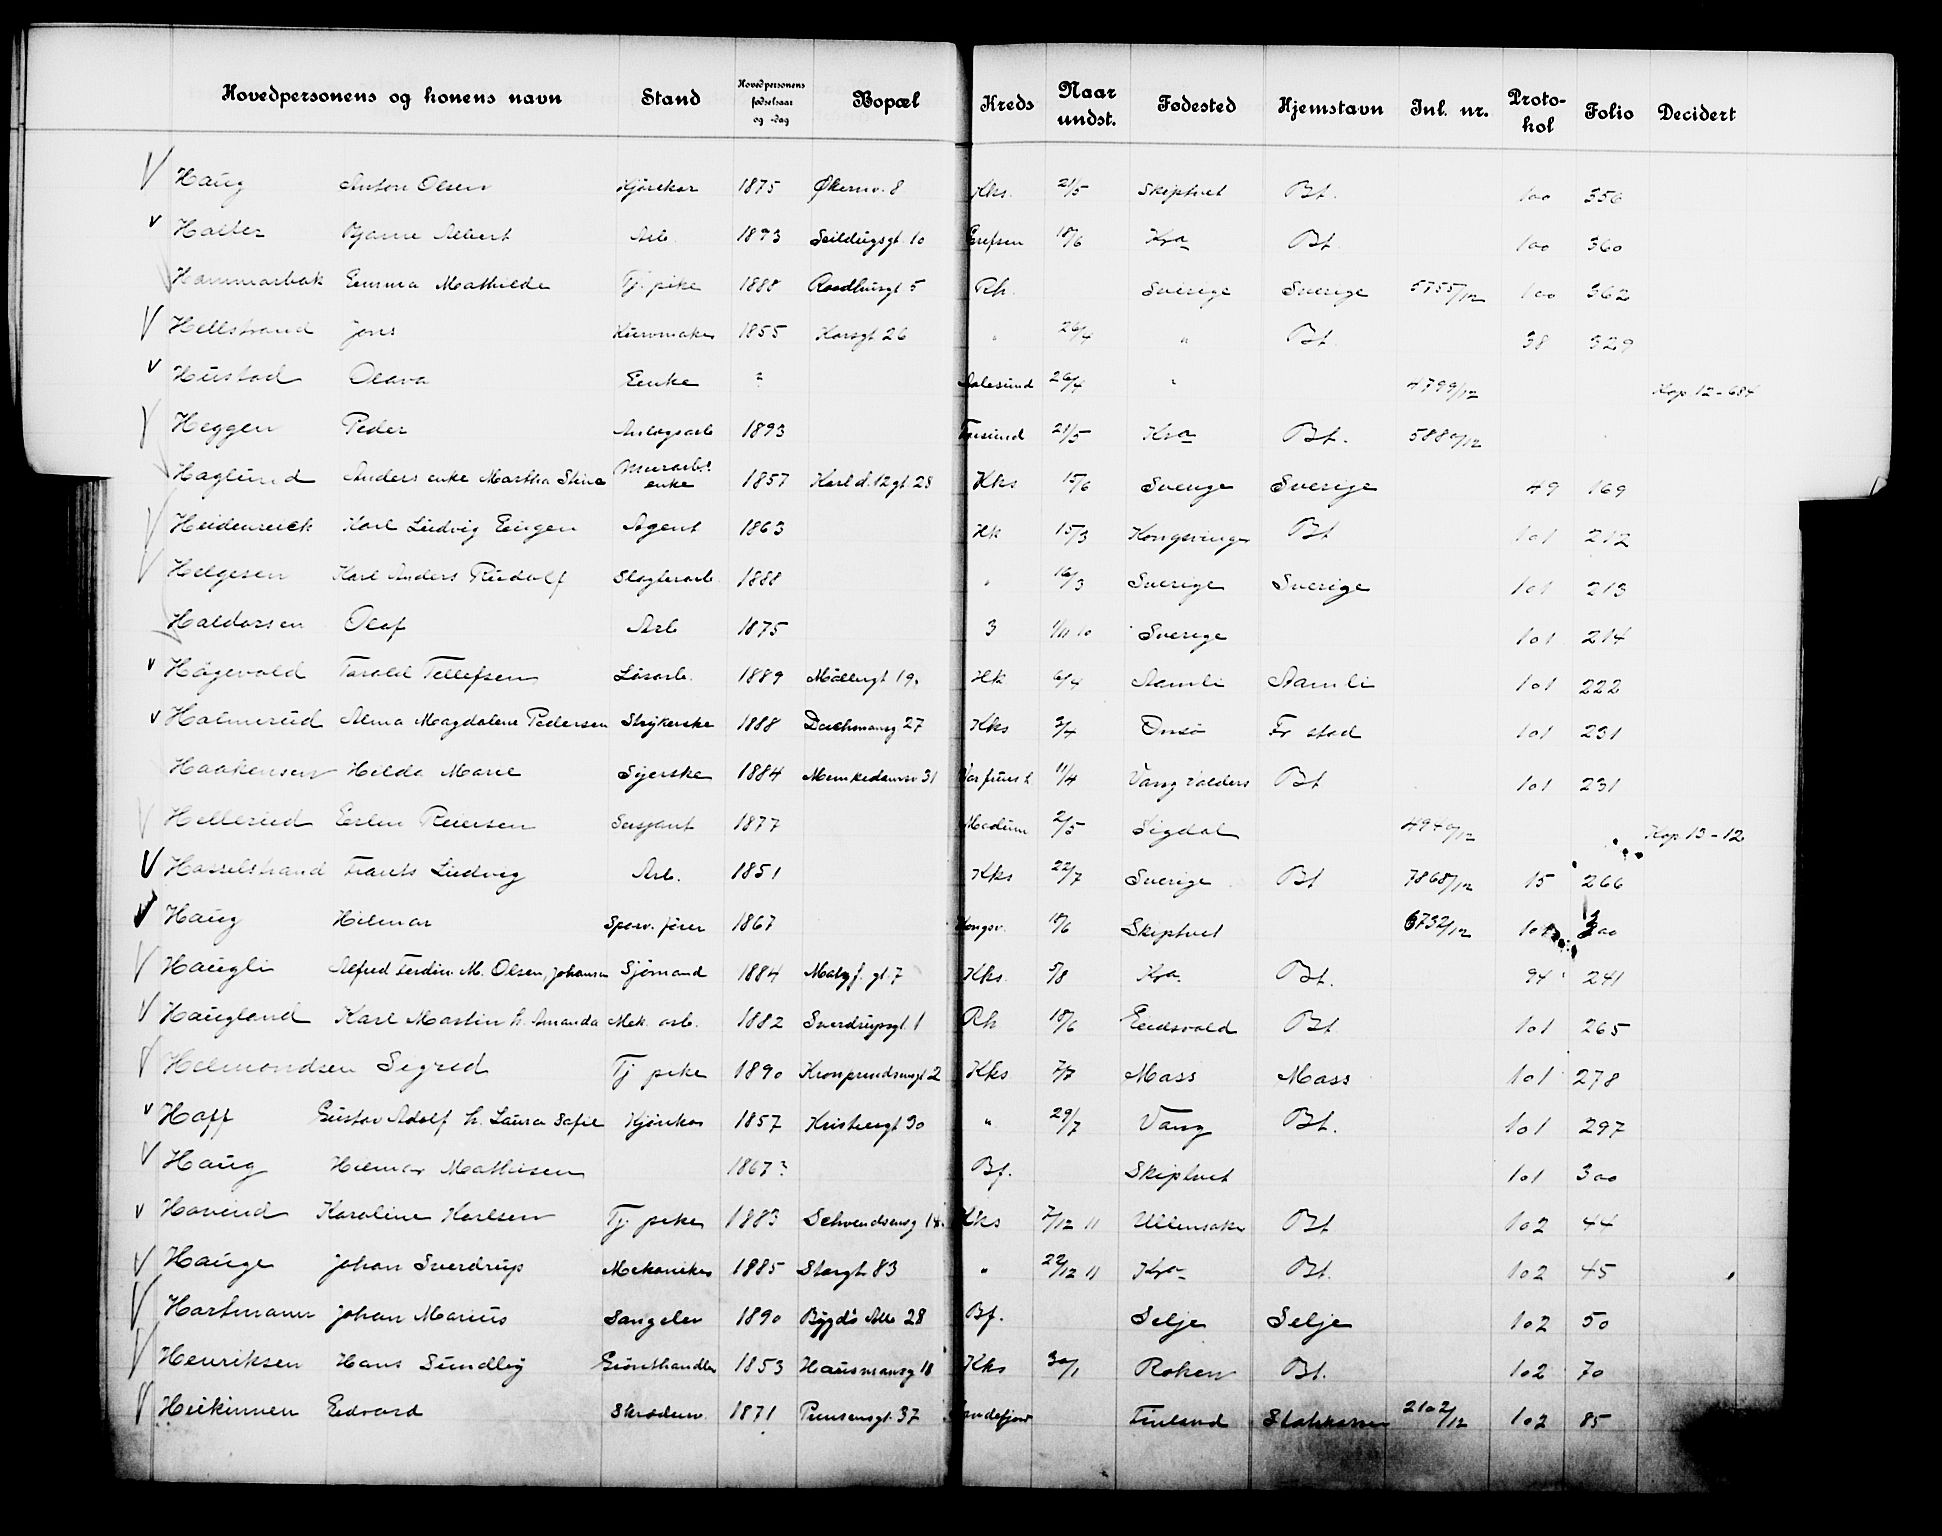 Hovedpersonens og konens navn Stand Hovedpersonens fødselsaar og -dag Bopæl Kreds Naar undst. Fødested Hjemstavn Inl. nr. Protokol Folio Decidert
Haug Anton Olsen Kjørekar 1875 Økernv. 8 Kks. 21/5 Skiptvet Bt. 100 356
Halter Bjarne Albert Arb. 1893 Seildugsgt 10 Grefsen 18/6 Kra Bt. 100 360
Hammarbak Emma Mathilde Tj. pike 1888 Raadhusgt 5 Rh. Sverige Sverige 5755/12 100 362
Hellstrand Jons Kurvmaker 1855 Korsgt 26 " 26/4 " Bt. 38 329
Hustad Olava Enke ? Aalesund 26/4 " 4799/12 Kop 12-684
Heggen Peder Anlægsarb 1893 21/5 Kra Bt. 5880/12
Haglund Anders enke Martha Stina Murarb. enke 1857 Karl d. 12 gt 28 Kks 15/6 Sverige Sverige 49 169
Heidenreich Karl Ludvig Eugen Agent 1863 Hk 15/3 Kongsvinger Bt 101 212
Helgesen Karl Anders Rudolf Slagterarb. 1888 " 16/3 Sverige Sverige 101 213
Haldorsen Olaf Arb 1875 3 1/11 10 Sverige 101 214
Hagevold Tarald Tellefsen Løsarb. 1889 Møllergt 19 Hk 6/4 Aamli Aamli 101 222
Halmerud Alma Magdalene Pedersen Strykerske 1888 27 Kks 3/4 Onsø Fr stad 101 231
Haakensen Hilda Marie Syerske 1884 Munkedamsv 31 Vor frues h. 11/4 Vang Valders Bt 101 231
Hellerud Erlin Reiersen Sersjant 1877 Modum 2/5 Sigdal 4940/12 Kop 13-12
Hasselstrand Frants Ludvig Arb. 1851 Kks 22/7 Sverige Bt 7868/12 15 266
Haug Hilmar Sporv. fører 1867 Kongsv. 18/6 Skiptvet 6732/12 101 300
Haugli Alfred Ferdin. M. Olsen, Johansen Sjømand 1884 gt. 7 Kks 5/8 Kra. Bt. 94 241
Haugland Karl Martin h. Amanda Mek. arb. 1882 Sverdrupsgt. 1 Rh 18/6 Eidsvold Bt 101 265
Helmondsen Sigrid Tj pike 1890 Kronprindsensgt 2 Kks 7/7 Moss Moss 101 278
Hoff Gustav Adolf h. Laura Sofie Kjørekar 1857 30 " 29/7 Vang Bt. 101 297
Haug Hilmar Mathisen 1867? Bf. Skiptvet 101 300
Hovind Karoline Karlsen Tj. pike 1883 Kks 7/12 11 Ullensaker Bt 102 44
Hauge Johan Sverdrup Mekaniker 1885 Storgt 83 " 22/12 11 Kra Bt. 102 45
Hartmann Johan Marius Sangelev 1890 Bygdø Alle 28 Bf. Selje Selje 102 50
Henriksen Hans Sundby Grønthandler 1853 Hausmansg 18 Kks 30/1 Røken Bt. 102 70
Heikinnen Edvard Skræddersv. 1871 Prinsensgt. 37 Sandefjord Finland 2102/12 102 85